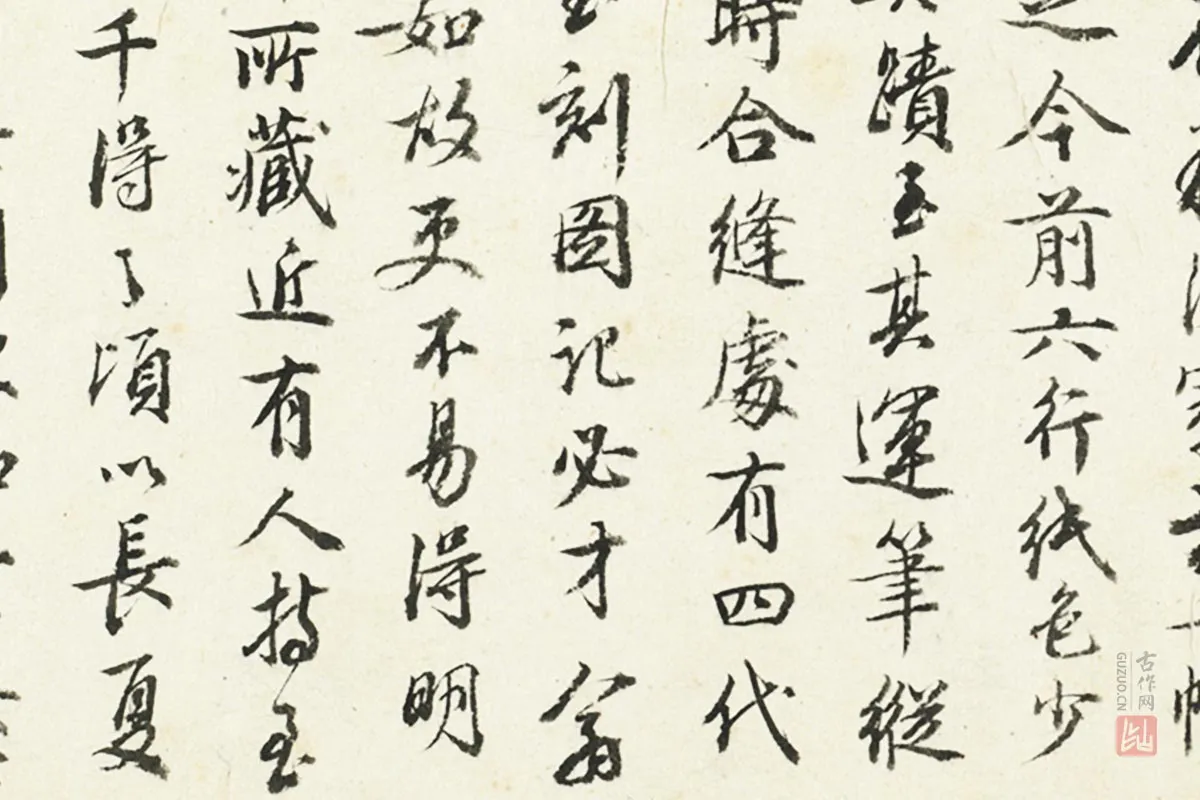 之今前六行紙色少
蹟至其運筆縱
時合縫處有四代
刻圖記必才翁
如故更不易得明
所藏近有人持至
千得了頃以長夏
古作网
GUZUO.CN